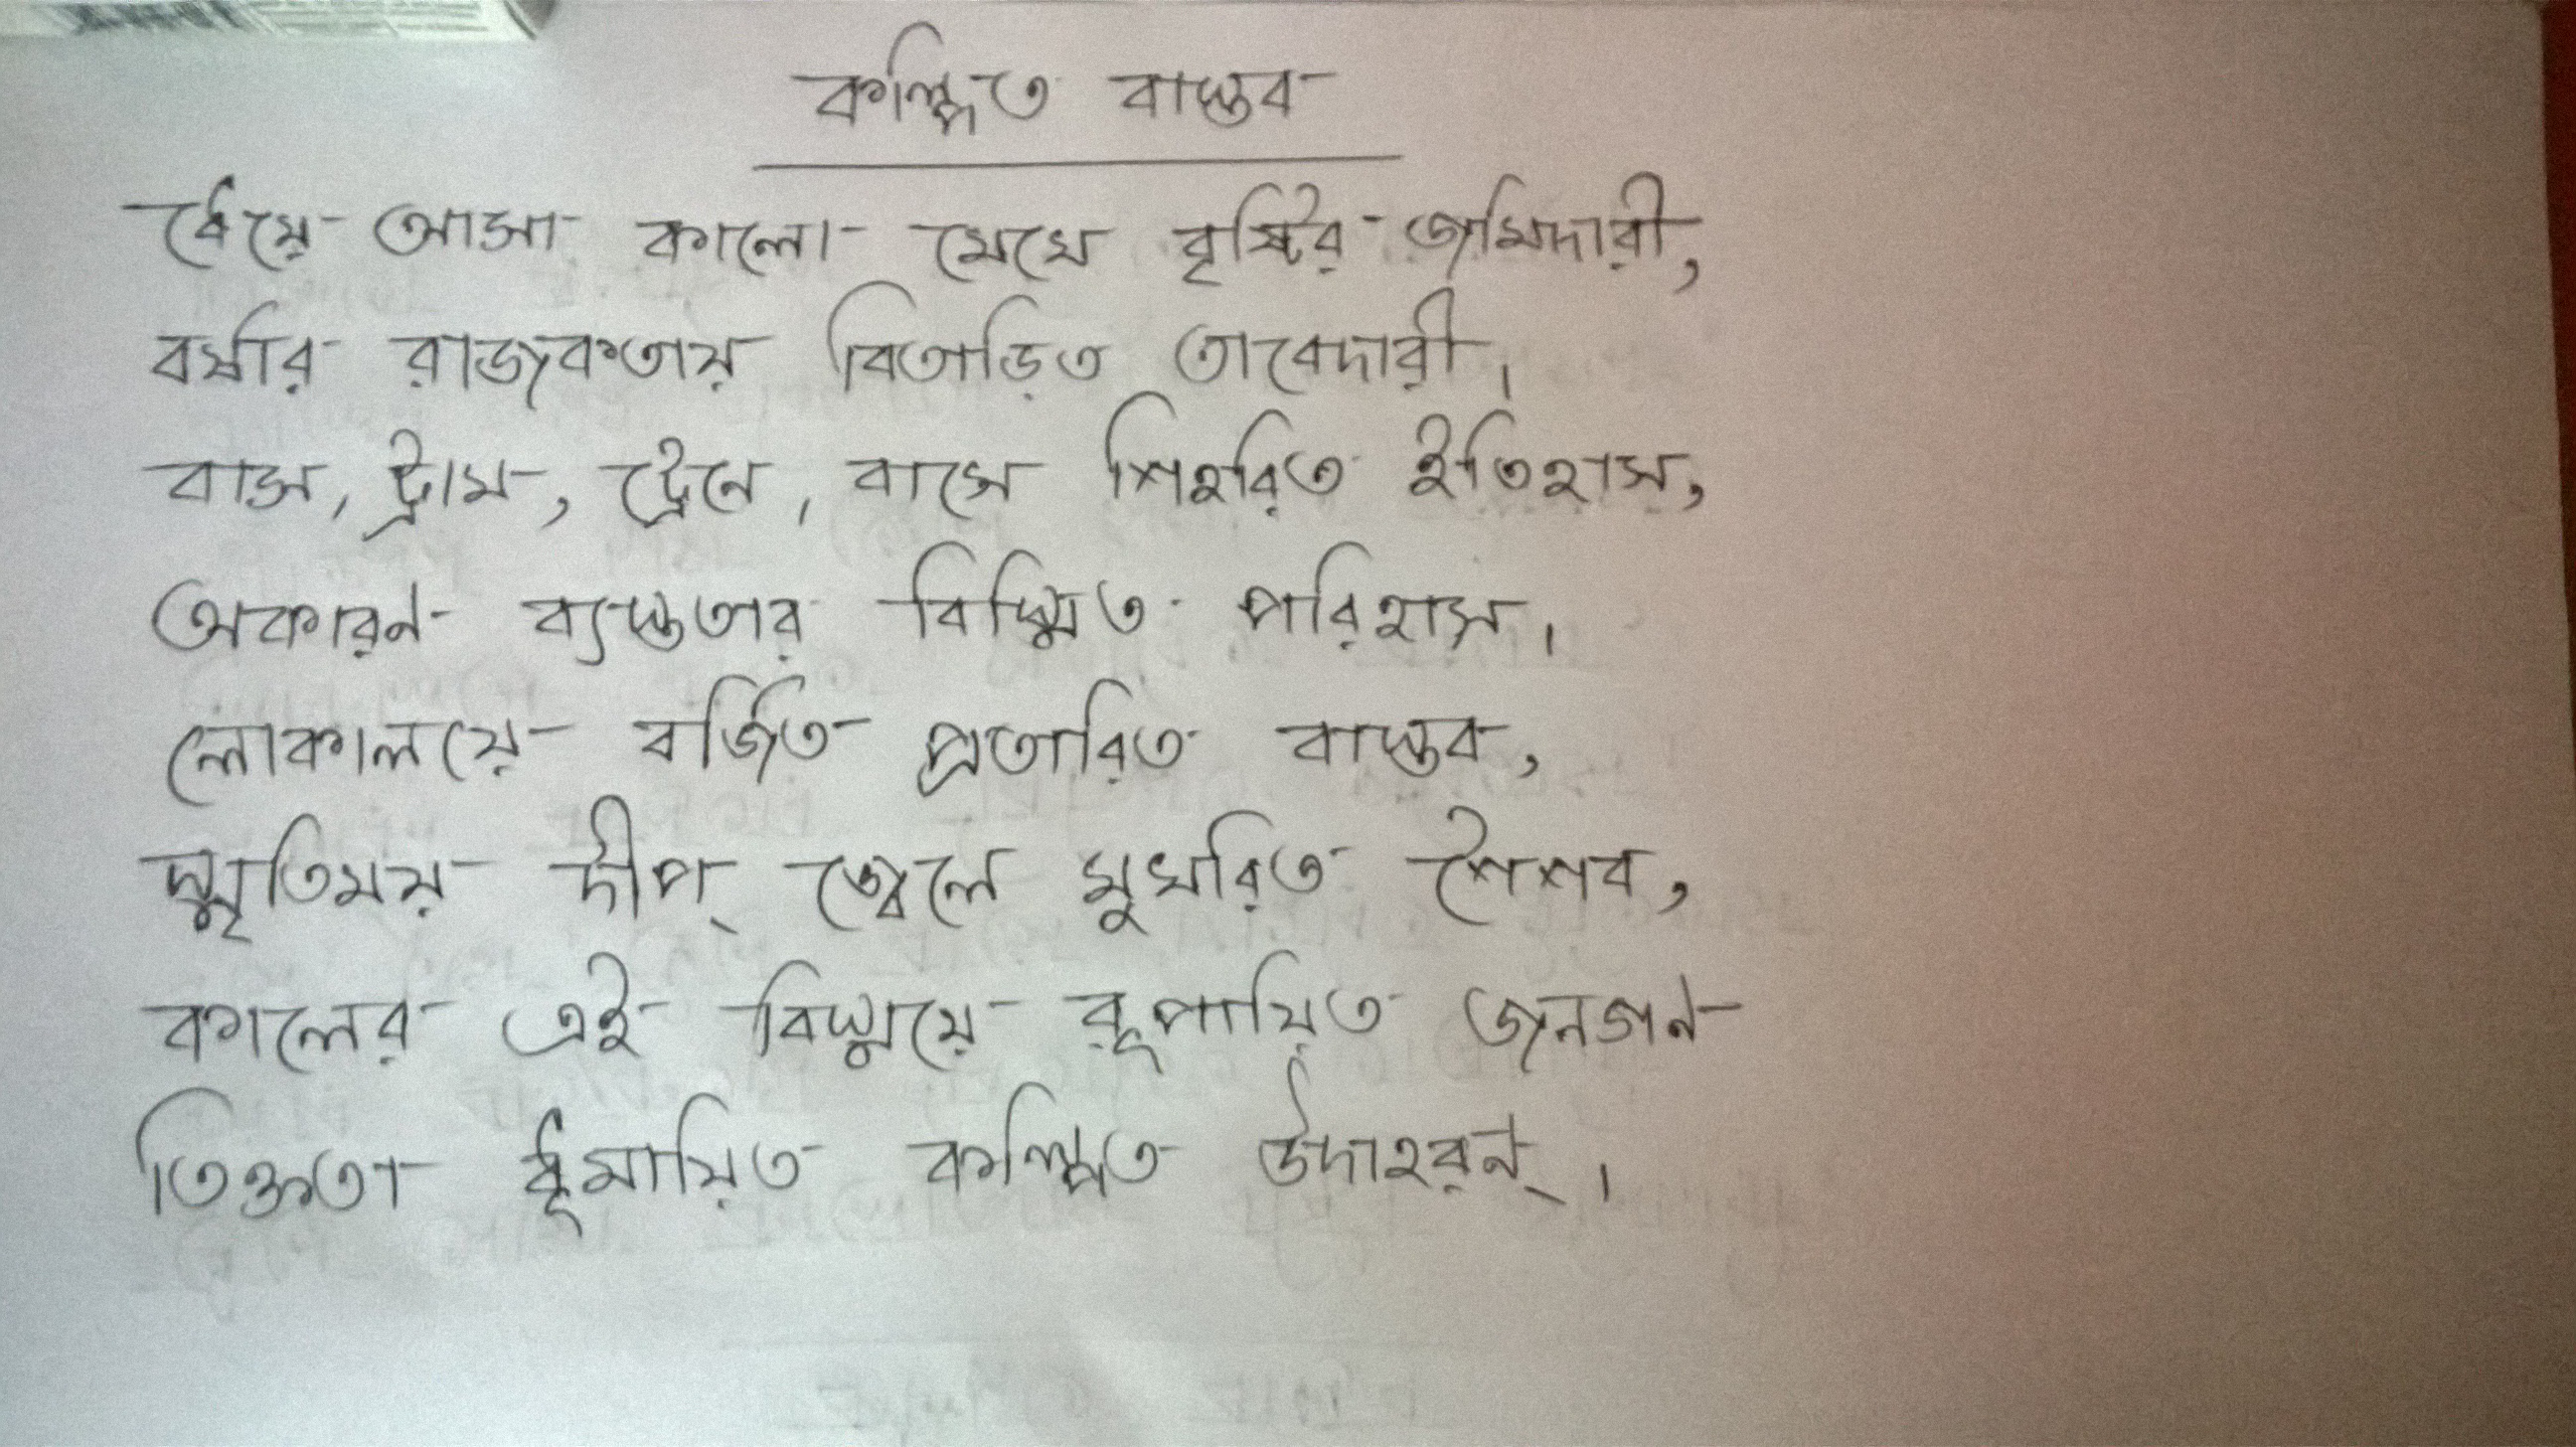 কল্পিত বাস্তব
ধেয়ে আসা কালো মেঘে বৃষ্টির জমিদারী,
বর্ষার রাজকতায় বিতাড়িত তাবেদারী।
বাস, ট্রাম, ট্রেনে, বাসে শিহরিত ইতিহাস,
অকারন ব্যস্ততার বিস্মিত পরিহাস।
লোকালয়ে বর্জিত প্রতারিত বাস্তব,
স্মৃতিময় দীপ্ জ্বেলে মুখরিত শৈশব,
কালের এই বিস্ময়ে রূপায়িত জনগন
তিক্ততা ধূমায়িত কল্পিত উদাহরন্।